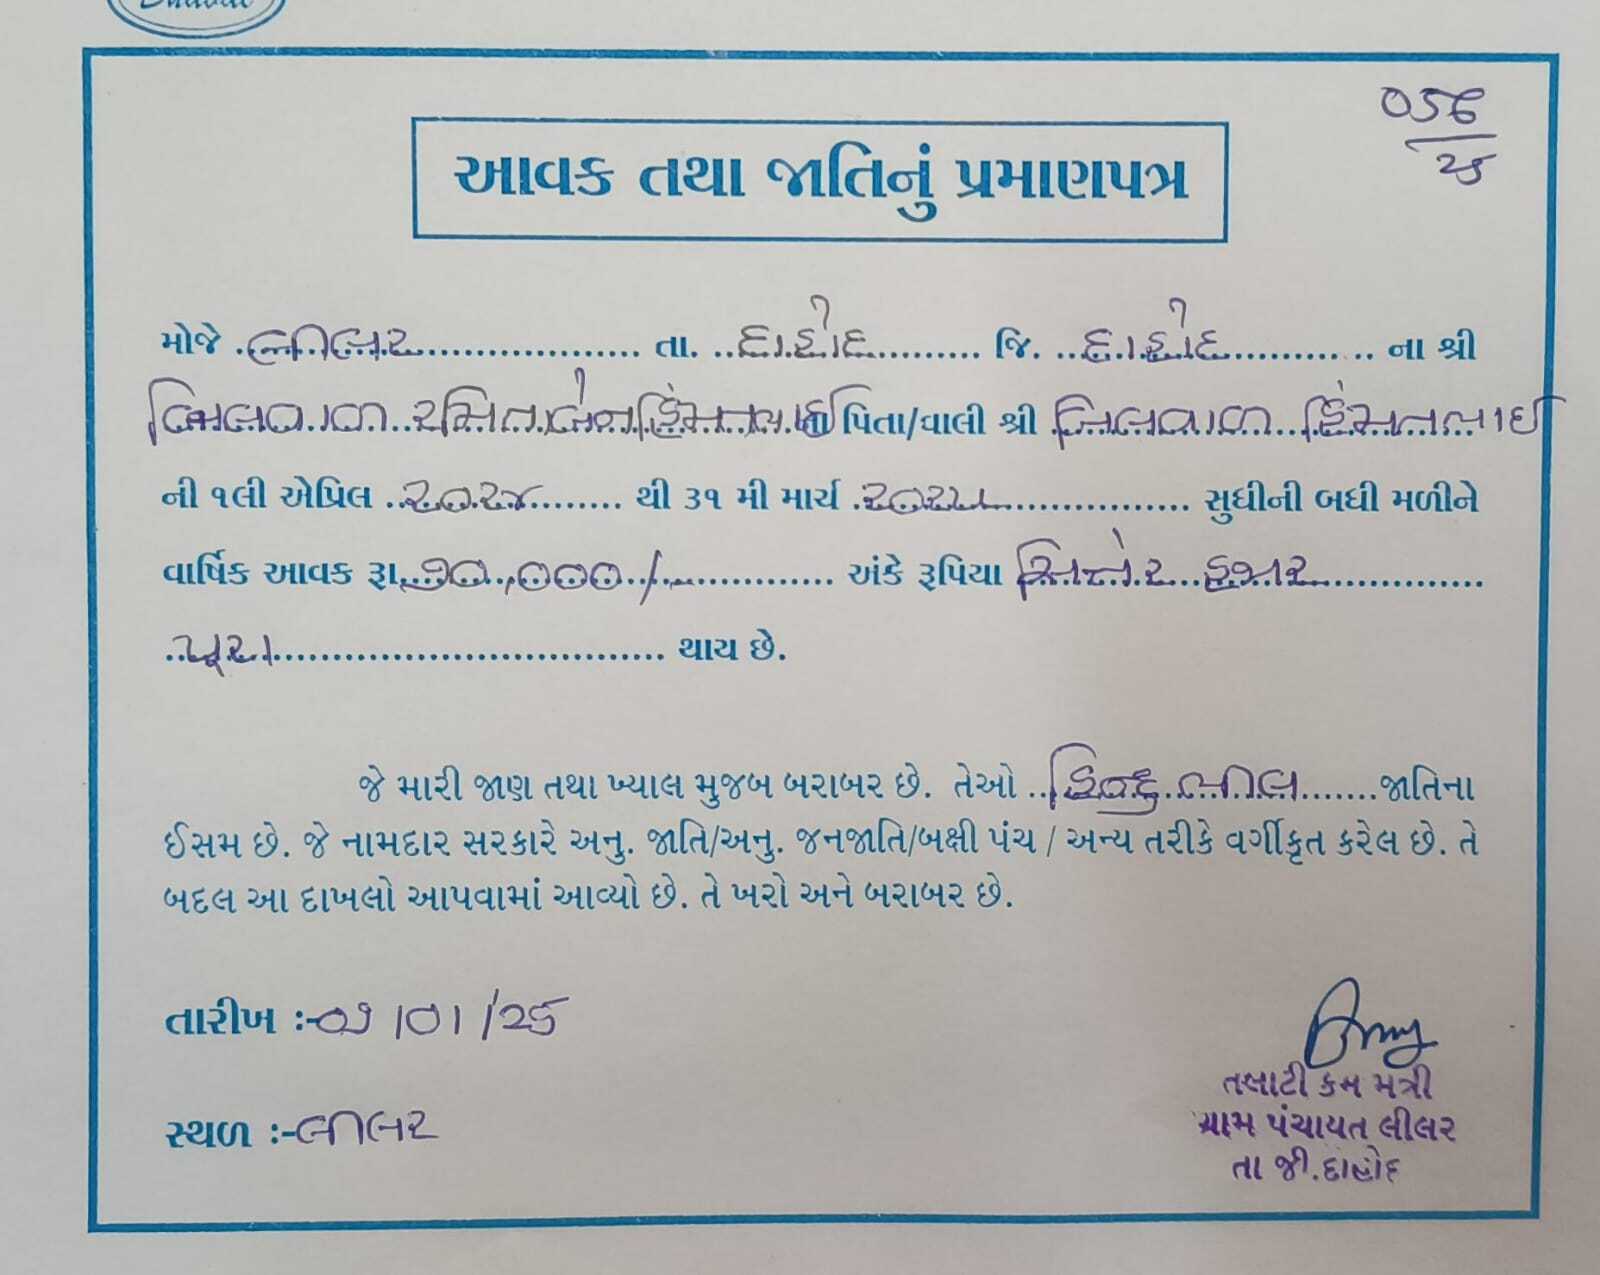 ૦૫૬
૨૫
આવક તથા જાતિનું પ્રમાણપત્ર
મોજે લીલર તા. દાહોદ જિ. દાહોદ ના શ્રી
બિલવાળ રમિતાબેન હિંમતભાઈ ના પિતા/વાલી શ્રી બિલવાળ હિંમતભાઈ
ની ૧લી એપ્રિલ ૨૦૨૪ થી ૩૧ મી માર્ચ ૨૦૨૫ સુધીની બધી મળીને
વાર્ષિક આવક રૂા. ૭૦,૦૦૦/- અંકે રૂપિયા સિત્તેર હજાર
પૂરા થાય છે.
જે મારી જાણ તથા ખ્યાલ મુજબ બરાબર છે. તેઓ હિન્દુ ભીલ જાતિના
ઈસમ છે. જે નામદાર સરકારે અનુ. જાતિ/અનુ. જનજાતિ/બક્ષી પંચ / અન્ય તરીકે વર્ગીકૃત કરેલ છે. તે
બદલ આ દાખલો આપવામાં આવ્યો છે. તે ખરો અને બરાબર છે.
તારીખ :- ૦૭/૦૧/૨૫
સ્થળ :- લીલર
તલાટી કમ મંત્રી
ગ્રામ પંચાયત લીલર
તા જી.દાહોદ